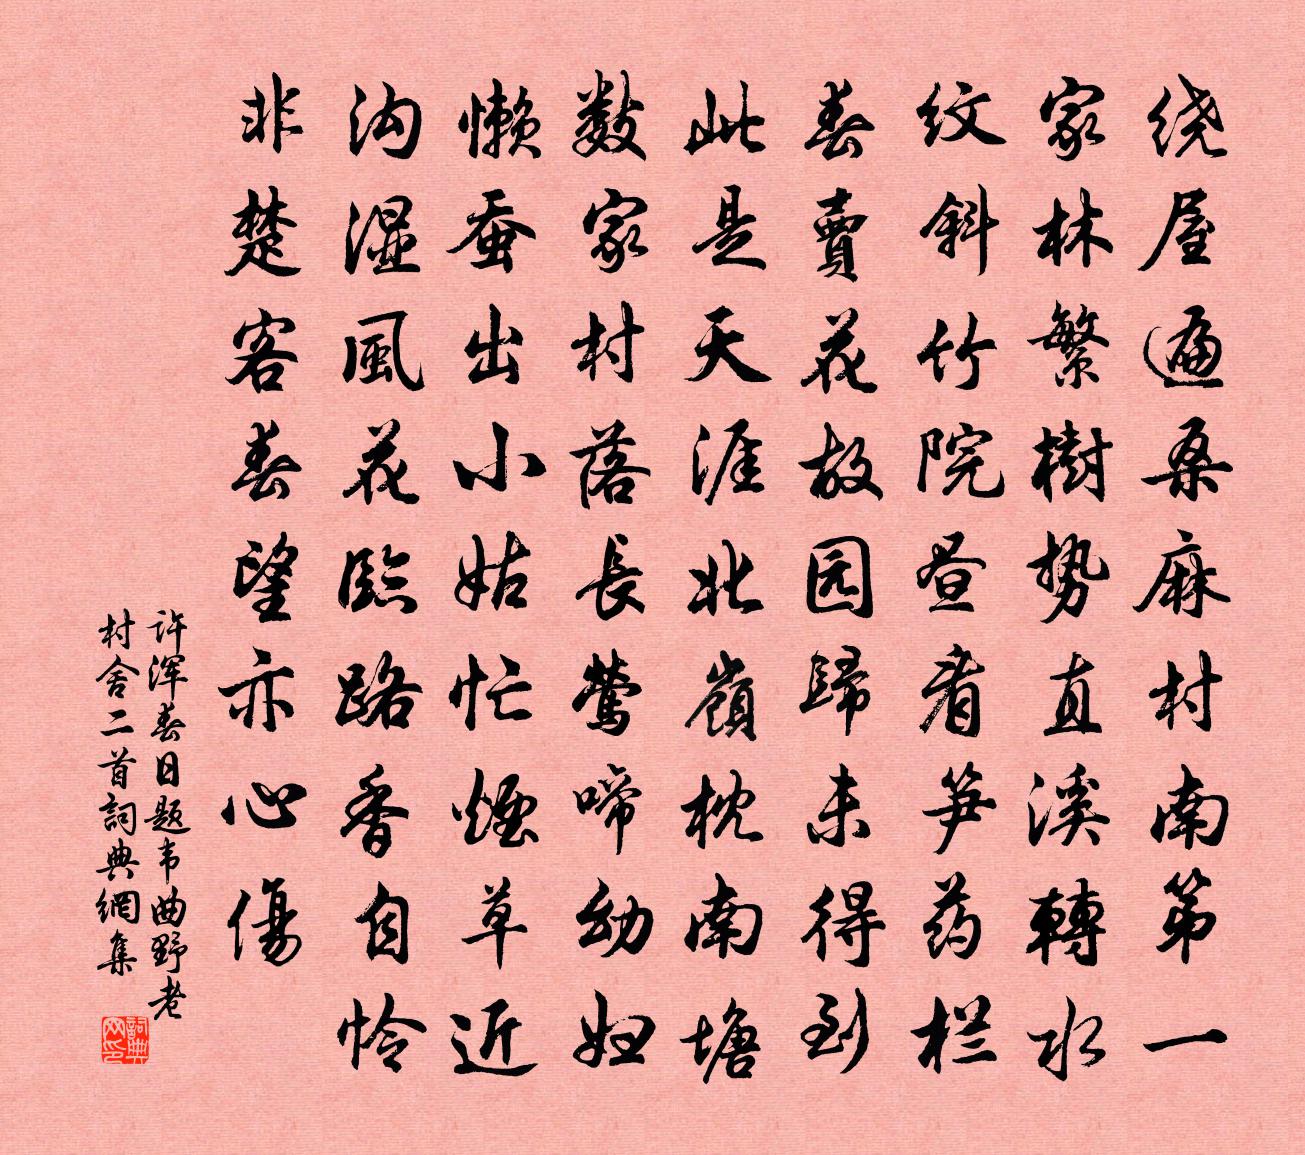 绕屋遍桑麻村南第一
家林繁樹势直溪轉水
纹斜竹院昼看笋药栏
春賣花故园歸未得到
此是天涯北嶺枕南塘
数家村落長莺啼幼妇
懒蚕出小姑忙煙草近
沟湿風花臨路香自怜
非楚客春望亦心傷
许浑春日题韦曲野老
村舍二首詞典網集
詞典网印